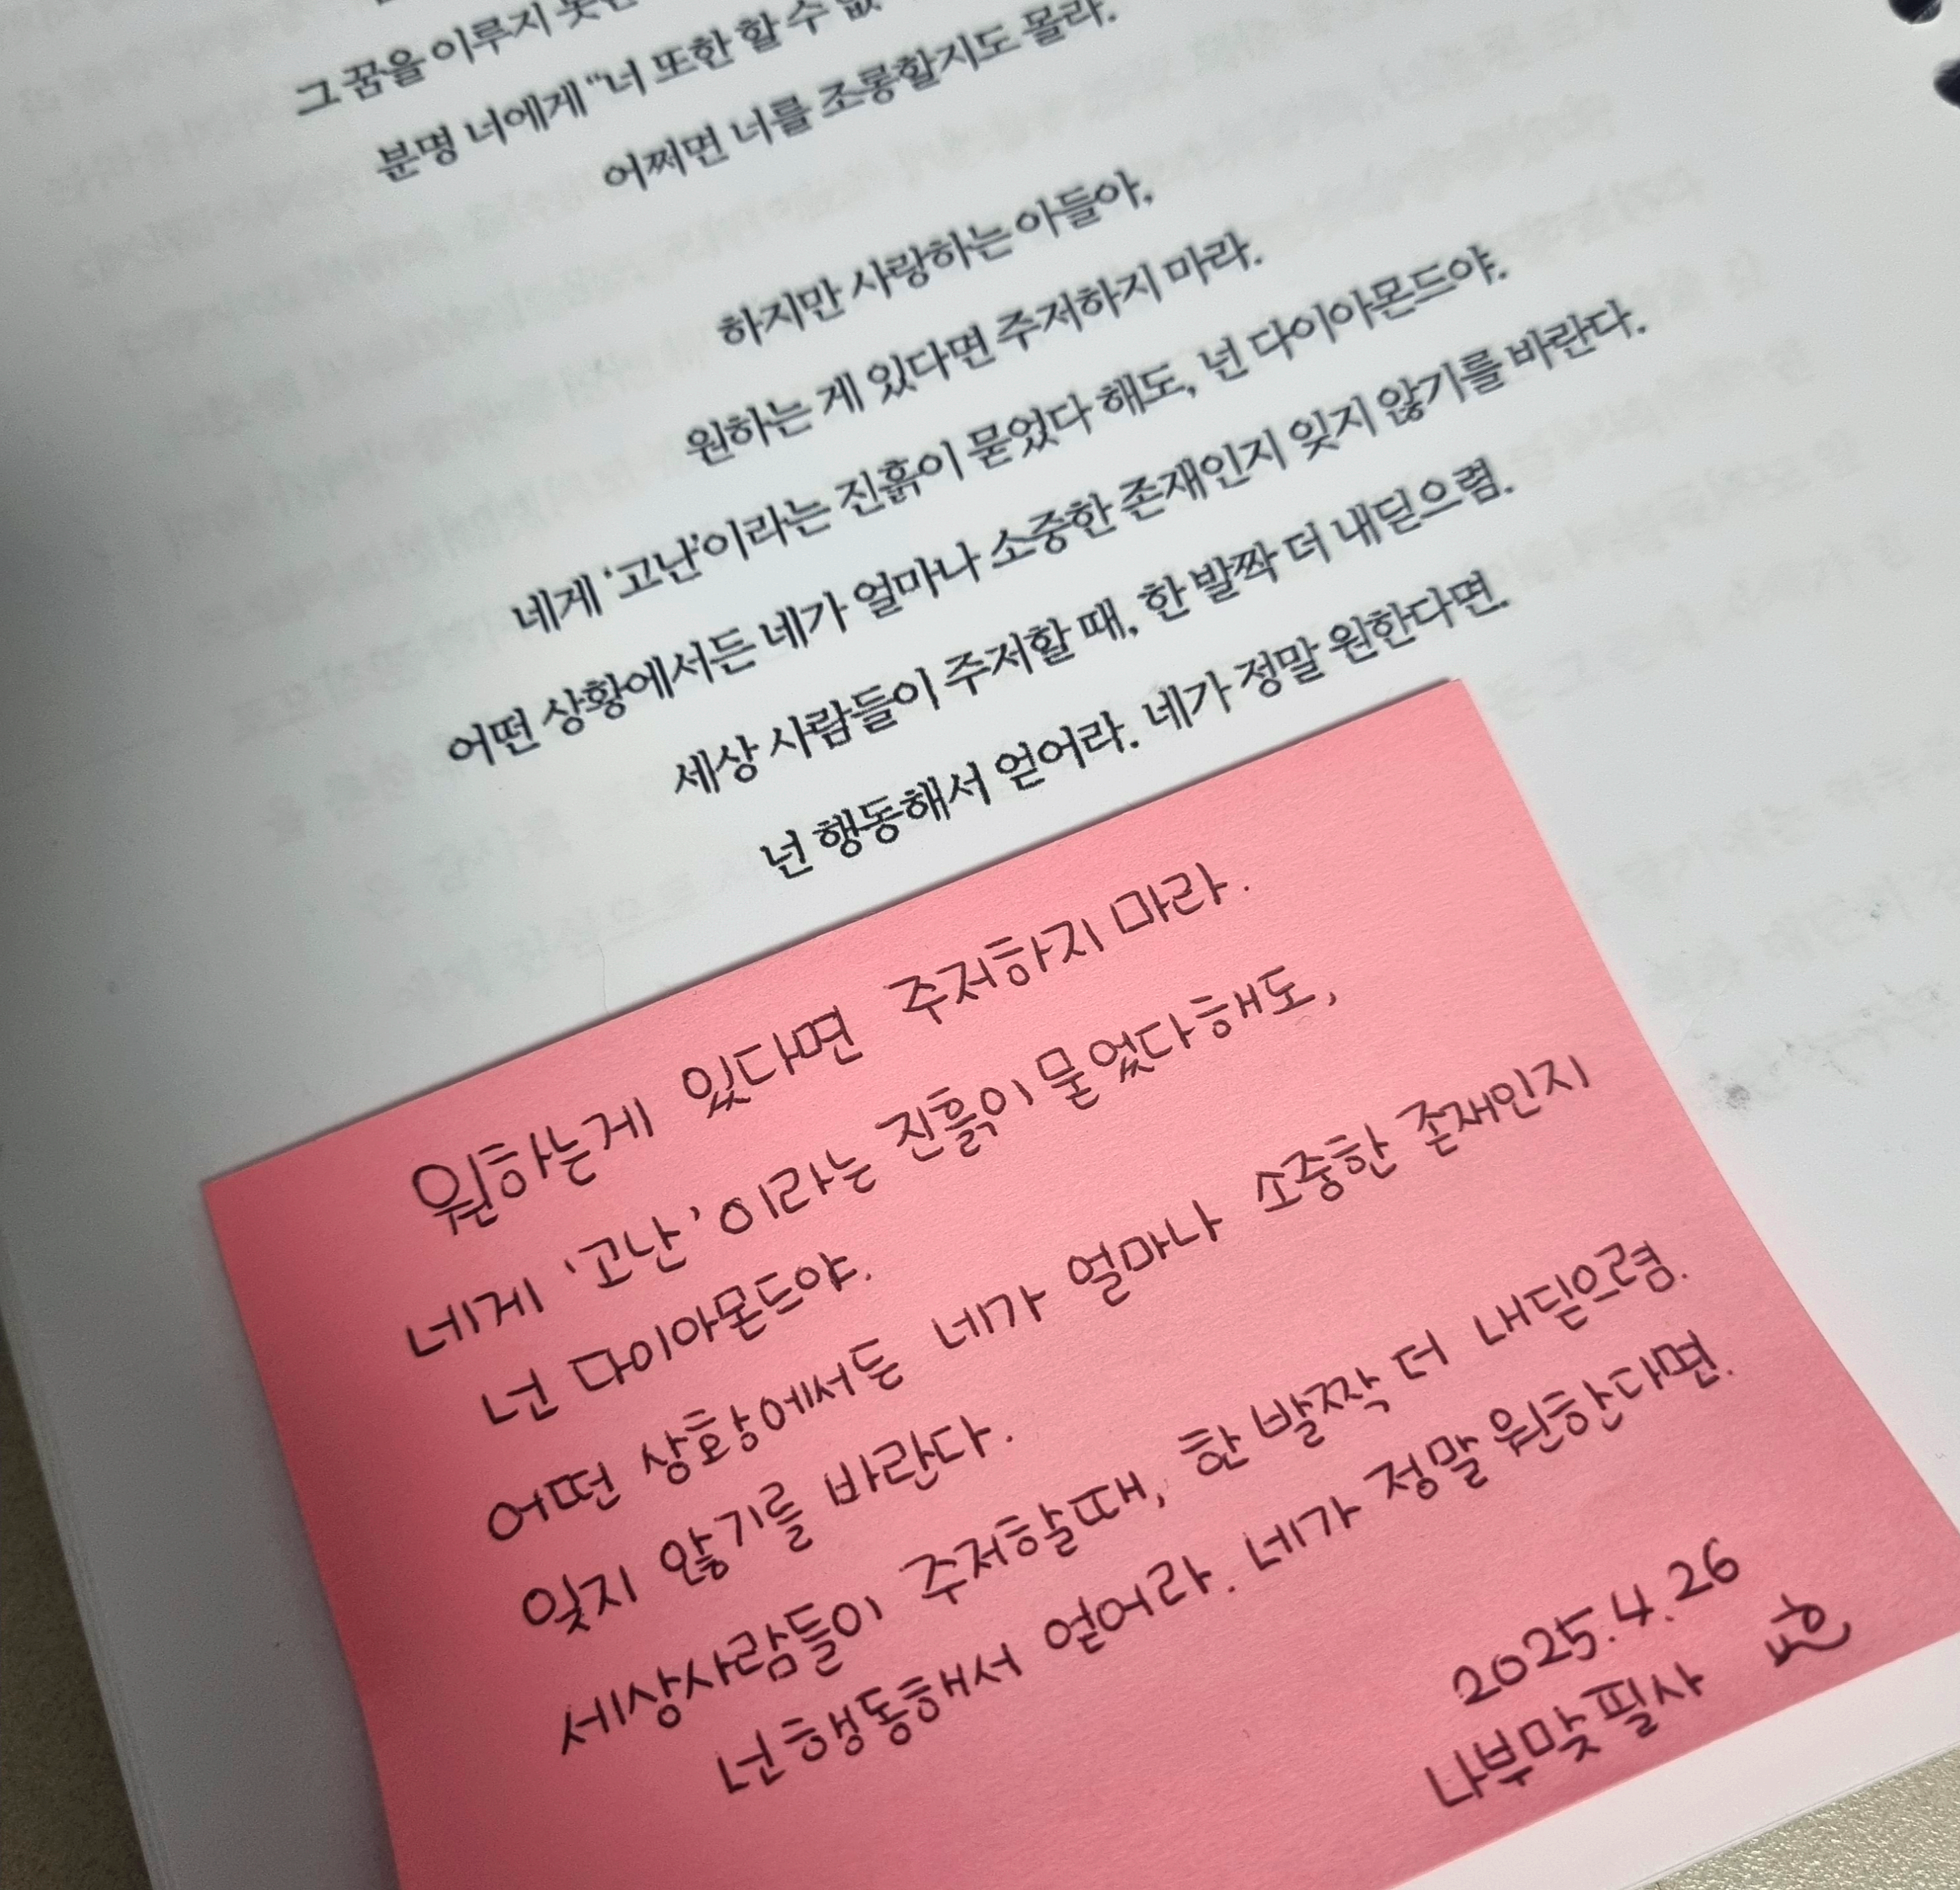 그 꿈을 이루지
분명 너에게 "너 또한 할 수 없
어쩌면 너를 조롱할지도 몰라.
하지만 사랑하는 아들아,
원하는 게 있다면 주저하지 마라.
네게 '고난'이라는 진흙이 묻었다 해도, 넌 다이아몬드야.
어떤 상황에서든 네가 얼마나 소중한 존재인지 잊지 않기를 바란다.
세상 사람들이 주저할 때, 한 발짝 더 내딛으렴.
넌 행동해서 얻어라. 네가 정말 원한다면.
원하는게 있다면 주저하지 마라.
네게 '고난'이라는 진흙이 묻었다해도,
넌 다이아몬드야.
어떤 상황에서든 네가 얼마나 소중한 존재인지
잊지 않기를 바란다.
세상사람들이 주저할때, 한 발짝 더 내딛으렴.
넌 행동해서 얻어라. 네가 정말 원한다면.
2025.4.26
나부맞필사